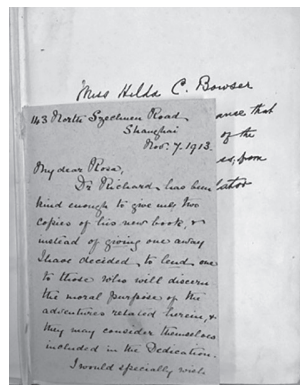 Miss Hilda C. Bowser
ance that
of the
ss, from
lator
143 North Szechuen Road,
Shanghai
Nov. 7. 1913.
My dear Rosa,
Dr Richard has been
kind enough to give me two
copies of his new book, &
instead of giving one away
I have decided to lend one
to those who will discern
the moral purpose of the
adventures related herein, &
they may consider themselves
included in the Dedication.
I would specially wish